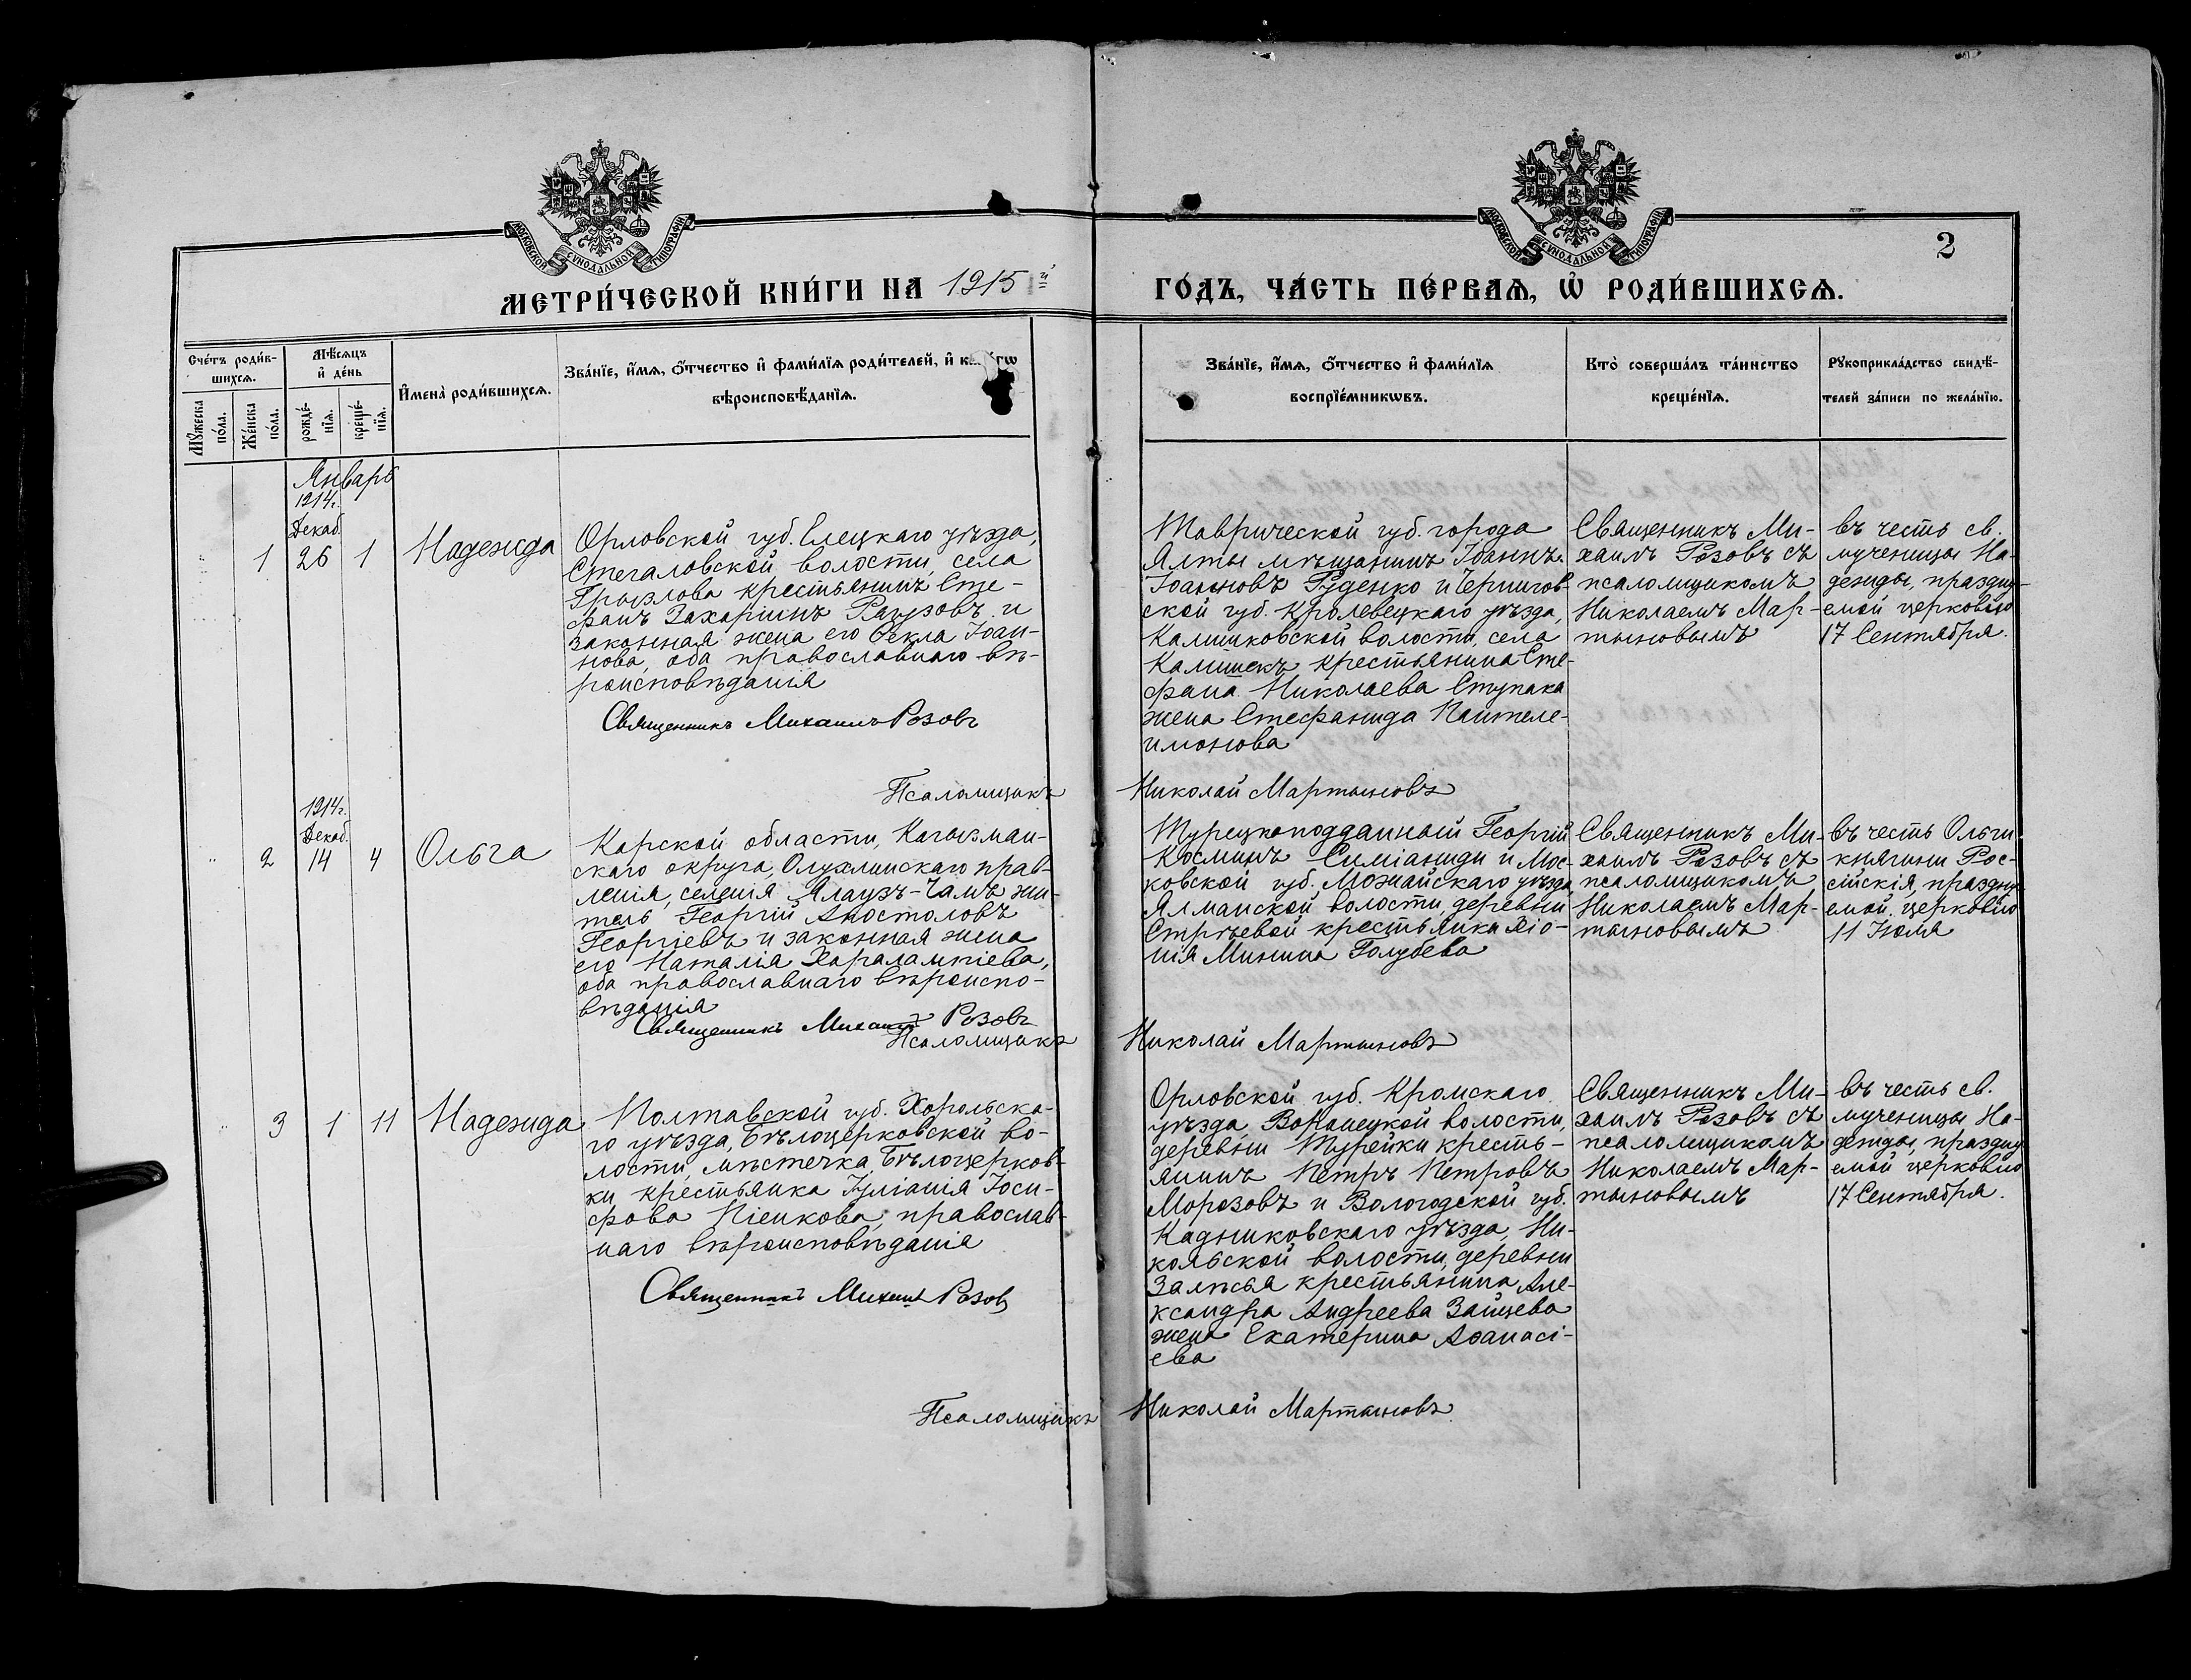 МОСКОВСКОЙ СУНОДАЛЬНОЙ ТИПОГРАФІИ
МОСКОВСКОЙ СУНОДАЛЬНОЙ ТИПОГРАФІИ
2
МЕТРИ́ЧЕСКОЙ КНИ́ГИ НА 1915й
ГО́ДЪ, ЧА́СТЬ ПЕ́РВАѦ, Ѡ҆ РОДИ́ВШИХСѦ.
Сче́тъ роди́в-
шихсѧ.
Мꙋ́жеска
по́ла.
Же́нска
по́ла.
Мѣ́сѧцъ
и҆ де́нь
рожде́-
нїѧ.
креще́-
нїѧ.
И҆мена̀ роди́вшихсѧ.
Зва́нїе, и҆́мѧ, ѻ҆́тчество и҆ фами́лїѧ роди́телей, и҆
вѣроисповѣ́данїѧ.
Зва́нїе, и҆́мѧ, ѻ҆́тчество и҆ фами́лїѧ
воспрїе́мникѡвъ.
Кто̀ соверша́лъ та́инство
креще́нїѧ.
Рꙋкоприкла́дство свидѣ́-
телей за́писи по жела́нїю.
Январь
1914г.
Декаб.
"
1
26
1
Надежда
Орловской губ. Елецкаго уѣзда,
Стегаловской волости, села
Грызлова крестьянинъ Сте-
фанъ Захаріинъ и
законная жена его Ѳекла Іоан-
нова, оба православнаго вѣ-
роисповѣданія
Священникъ Михаилъ Розовъ
Псаломщикъ
Таврической губ. города
Ялты мѣщанинъ Іоаннъ
Іоанновъ Руденко и Чернигов-
ской губ. Кролевецкаго уѣзда,
Камышковской волости, села
Камышекъ крестьянина Сте-
фана Николаева Ступака
жена Стефанида Пантеле-
имонова
Николай Мартыновъ
Священникъ Ми-
хаилъ Розовъ съ
псаломщикомъ
Николаемъ Мар-
тыновымъ
въ честь св.
мученицы На-
дежды, праздну-
емой церковью
17 Сентября.
1914г.
Декаб.
"
2
14
4
Ольга
Карской области, Кагызман-
скаго округа, Олухлинскаго прав-
ленія, селенія Ялаузъ-Чамъ жи-
тель Георгій Апостоловъ
Георгіевъ и законная жена
его Наталія Харалампіева,
оба православнаго вѣроиспо-
вѣданія
Священникъ Михаилъ Розовъ
Псаломщикъ
Турецкоподданный Георгій
Косминъ Симіаниди и Мос-
ковской губ. Можайскаго уѣзда
Ялманской волости, деревни
крестьянка Ѳіо-
нія Минина Голубева
Николай Мартыновъ
Священникъ Ми-
хаилъ Розовъ съ
псаломщикомъ
Николаемъ Мар-
тыновымъ
въ честь Ольги
княгини Рос-
сійскія, праздну-
емой церковью
11 Іюля
"
3
1
11
Надежда
Полтавской губ. Хорольска-
го уѣзда, Бѣлоцерковской во-
лости, мѣстечка Бѣлоцерков-
ки крестьянка Іуліанія Іоси-
фова Піенкова, православ-
наго вѣроисповѣданія
Священникъ Михаилъ Розовъ
Псаломщикъ
Орловской губ. Кромскаго
уѣзда Воронецкой волости,
деревни Турейки кресть-
янинъ Петръ Петровъ
Морозовъ и Вологодской губ.
Кадниковскаго уѣзда, Ни-
кольской волости, деревни
Залѣсья крестьянина Але-
ксандра Андреева Зайцева
жена Екатерина Аѳанасі-
ева
Николай Мартыновъ
Священникъ Ми-
хаилъ Розовъ съ
псаломщикомъ
Николаемъ Мар-
тыновымъ
въ честь св.
мученицы На-
дежды, праздну-
емой церковью
17 Сентября.